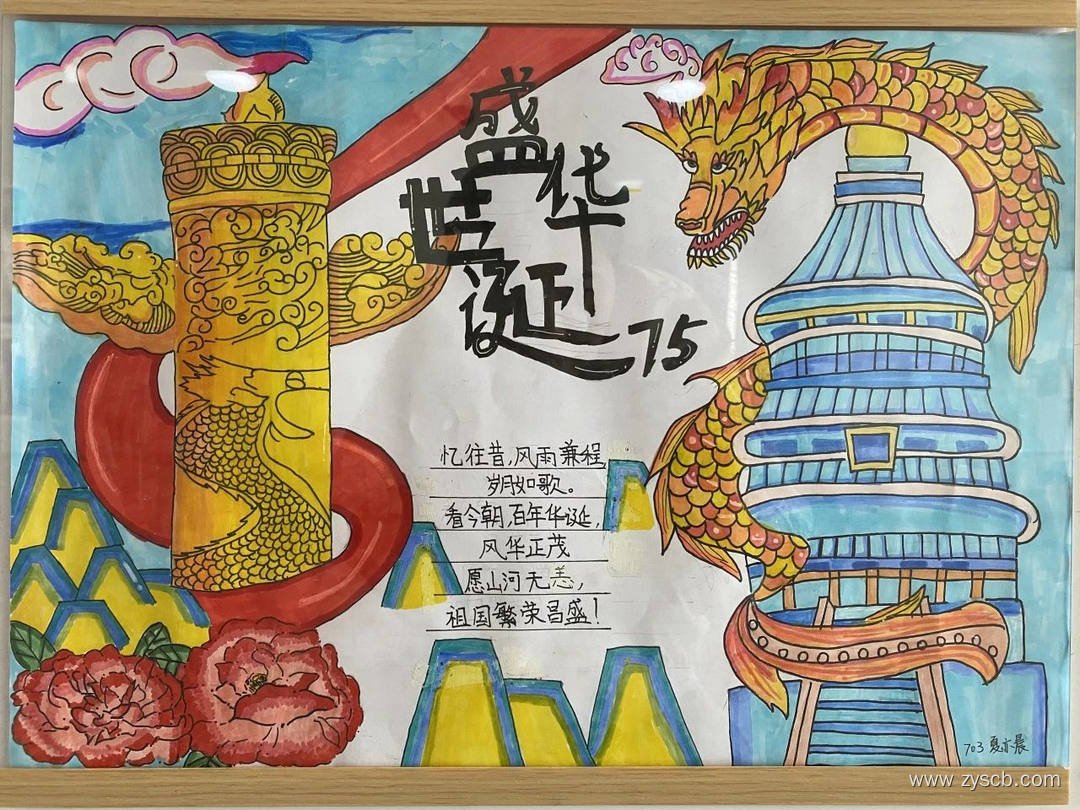 盛世华诞
75
忆往昔,风雨兼程,
岁月如歌。
看今朝,百年华诞,
风华正茂
愿山河无恙,
祖国繁荣昌盛!
703 夏亦晨
www.zyscb.com